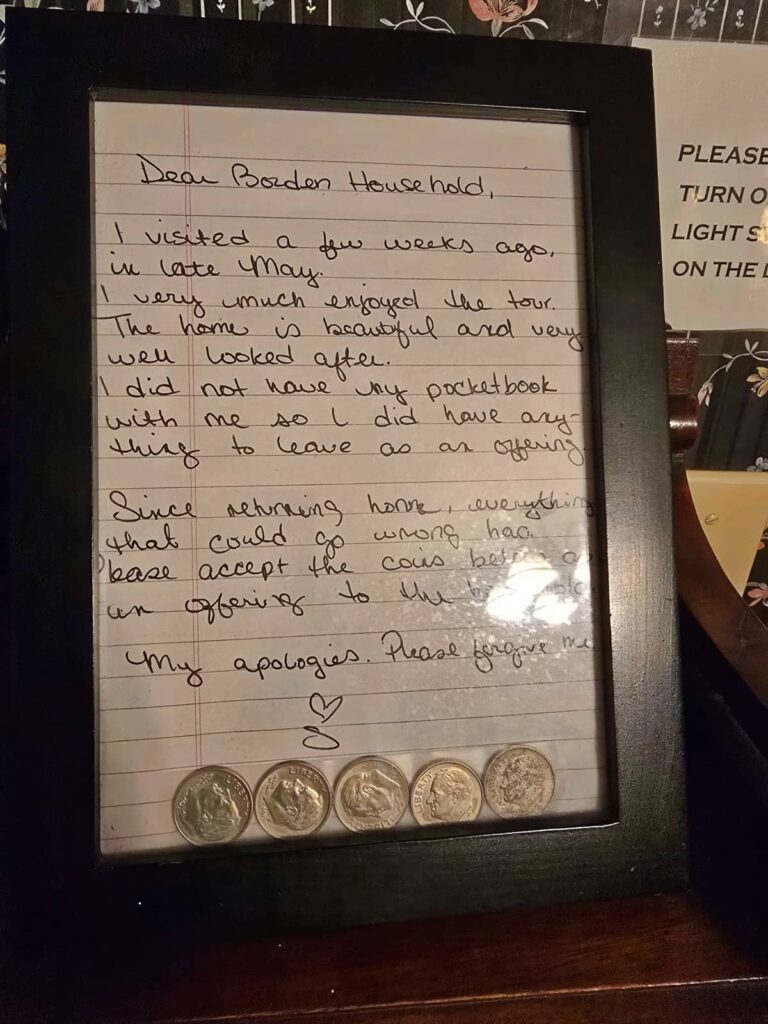 Dear Borden Household,
I visited a few weeks ago,
in late May.
I very much enjoyed the tour.
The home is beautiful and very
well looked after.
I did not have my pocketbook
with me so I did have any-
thing to leave as an offering
Since returning home, everything
that could go wrong has.
Please accept the coins below as
an offering to the
My apologies. Please forgive me
PLEASE
TURN O
LIGHT S
ON THE L
LIBERTY
LIBERTY
LIBERTY
LIBERTY